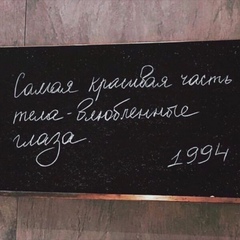 Самая красивая часть
тела - влюбленные
глаза.
1994